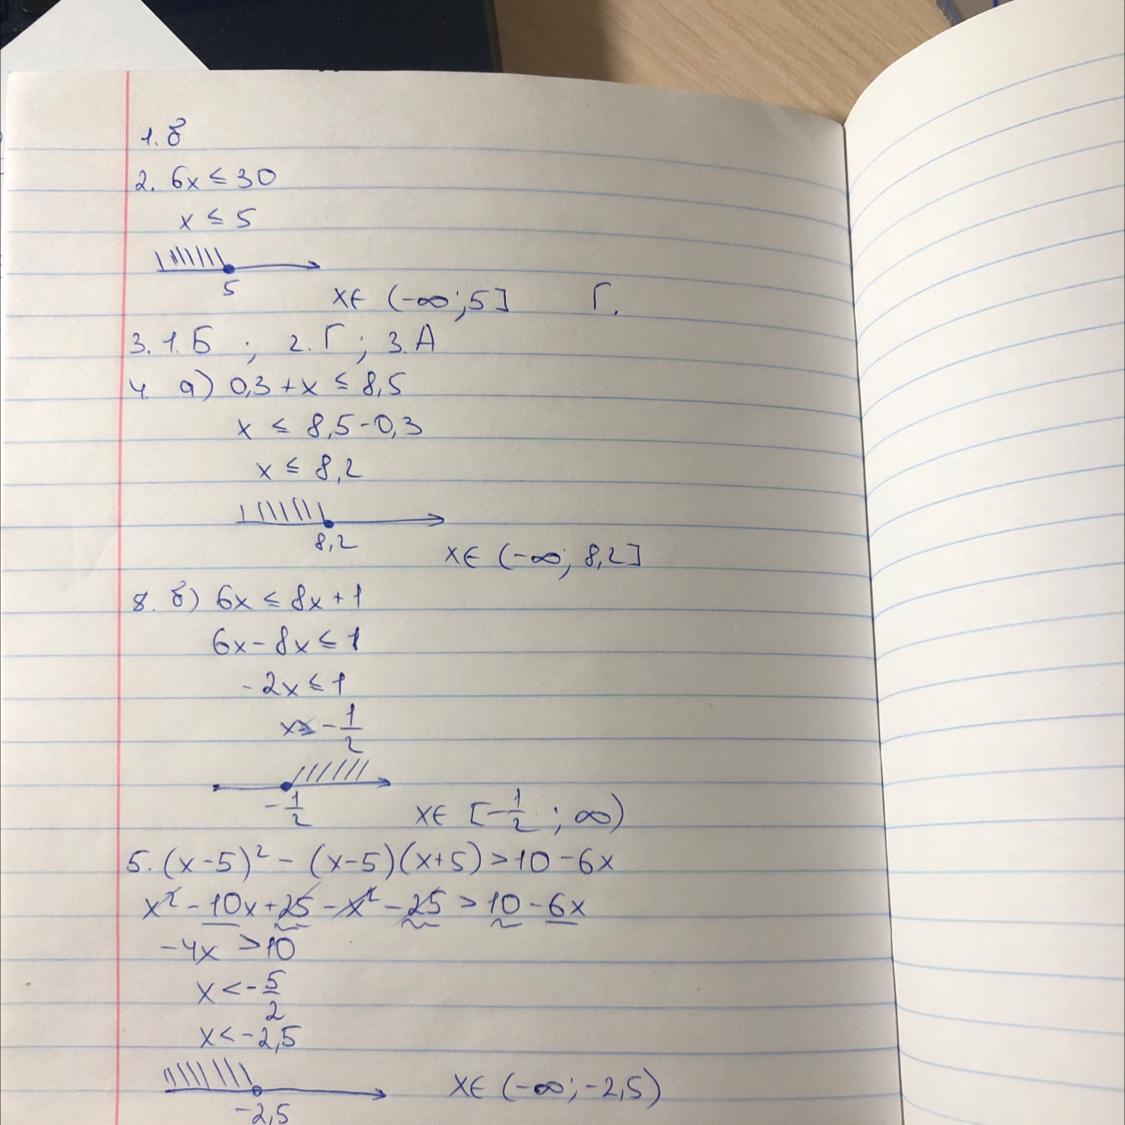 1. б
2. 6x ≤ 30
x ≤ 5
5
x∈ (-∞; 5] Г.
3. 1. Б ; 2. Г ; 3. А
4. а) 0,3 + x ≤ 8,5
x ≤ 8,5 - 0,3
x ≤ 8,2
8,2
x∈ (-∞; 8,2]
8. б) 6x ≤ 8x + 1
6x - 8x ≤ 1
-2x ≤ 1
x ≥ -1/2
-1/2
x∈ [-1/2 ; ∞)
5. (x-5)² - (x-5)(x+5) > 10 - 6x
x² - 10x + 25 - x² - 25 > 10 - 6x
-4x > 10
x < -5/2
x < -2,5
-2,5
x∈ (-∞; -2,5)